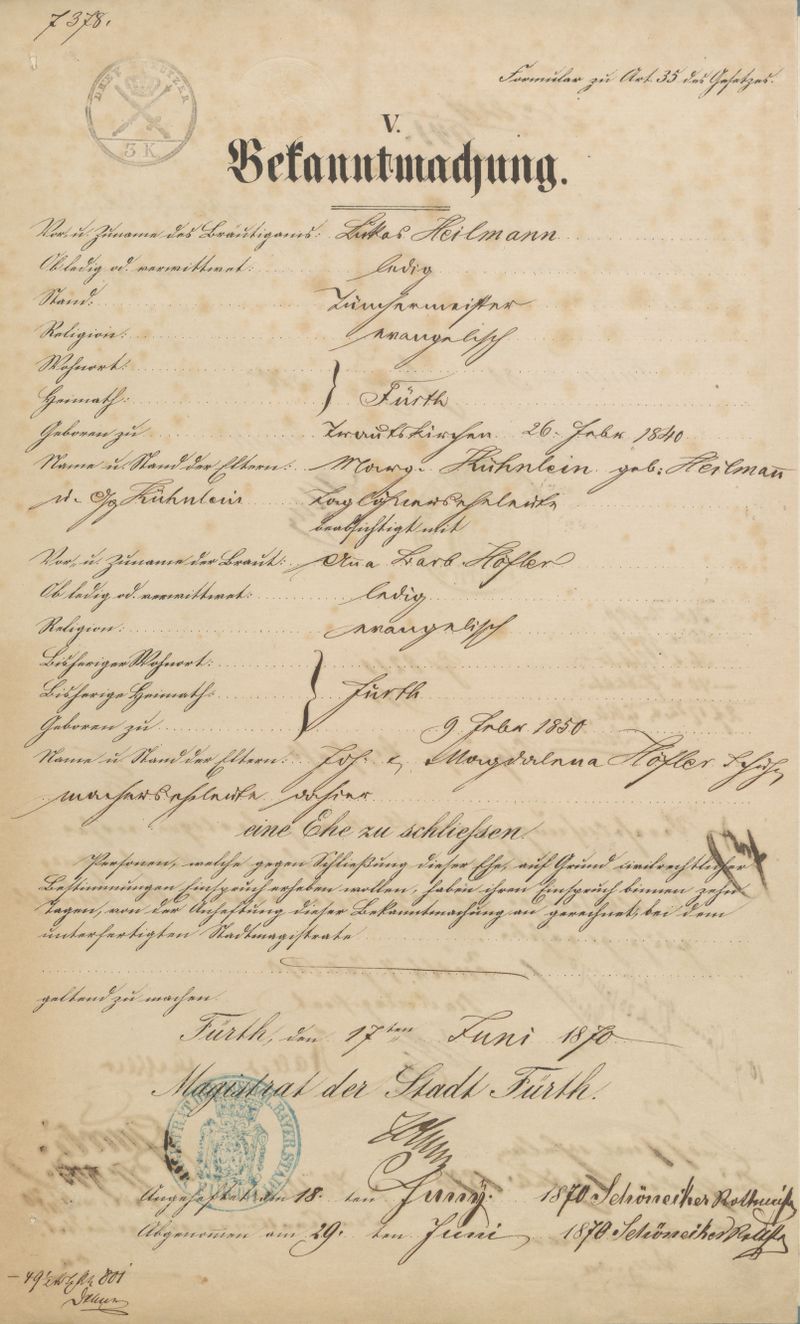 7378.
DREY KREUTZER
3 K
Formular zu Art. 35 des Gesetzes.
V.
Bekanntmachung.
Vor, u. Zuname des Bräutigams: Lukas Heilmann
Ob ledig od. verwittwet: ledig
Stand: Tünchermeister
Religion: evangelisch
Wohnort:
Heimath: Fürth
Geboren zu Trautskirchen 26. Febr 1840
Name u. Stand der Eltern: Marg. Kühnlein geb: Heilmann
u. Kühnlein Taglöhnerseheleute
beabsichtigt mit
Vor, u. Zuname der Braut: Anna Barb Höfler
Ob ledig od. verwittwet: ledig
Religion: evangelisch
Bisheriger Wohnort:
Bisherige Heimath: Fürth
Geboren zu 9 Febr 1850
Name u Stand der Eltern: Joh. & Magdalena Höfler Schuh,
macherseheleute dahier
eine Ehe zu schliessen.
Personen, welche gegen Schließung dieser Ehe, auf Grund civilrechtlicher
Bestimmungen Einspruch erheben wollen, haben ihren Einspruch binnen zehn
Tagen, von der Anheftung dieser Bekanntmachung an gerechnet, bei dem
unterfertigten Stadtmagistrate
geltend zu machen.
Fürth, den 17ten Juni 1870
Magistrat der Stadt Fürth.
Angeheftet am 18. ten Juny. 1870 Schöneiker Rottmstr
Abgenomen am 29. ten Juni 1870 Schöneiker Rottstr
801